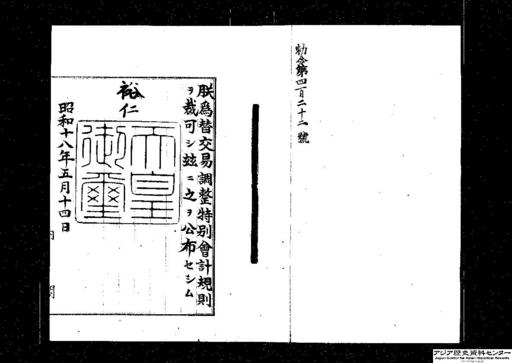 勅令第四百二十二號
朕爲替交易調整特別會計規則
ヲ裁可シ玆ニ之ヲ公布セシム
裕仁
天皇御璽
昭和十八年五月十四日
アジア歴史資料センター
Japan Center for Asian Historical Records